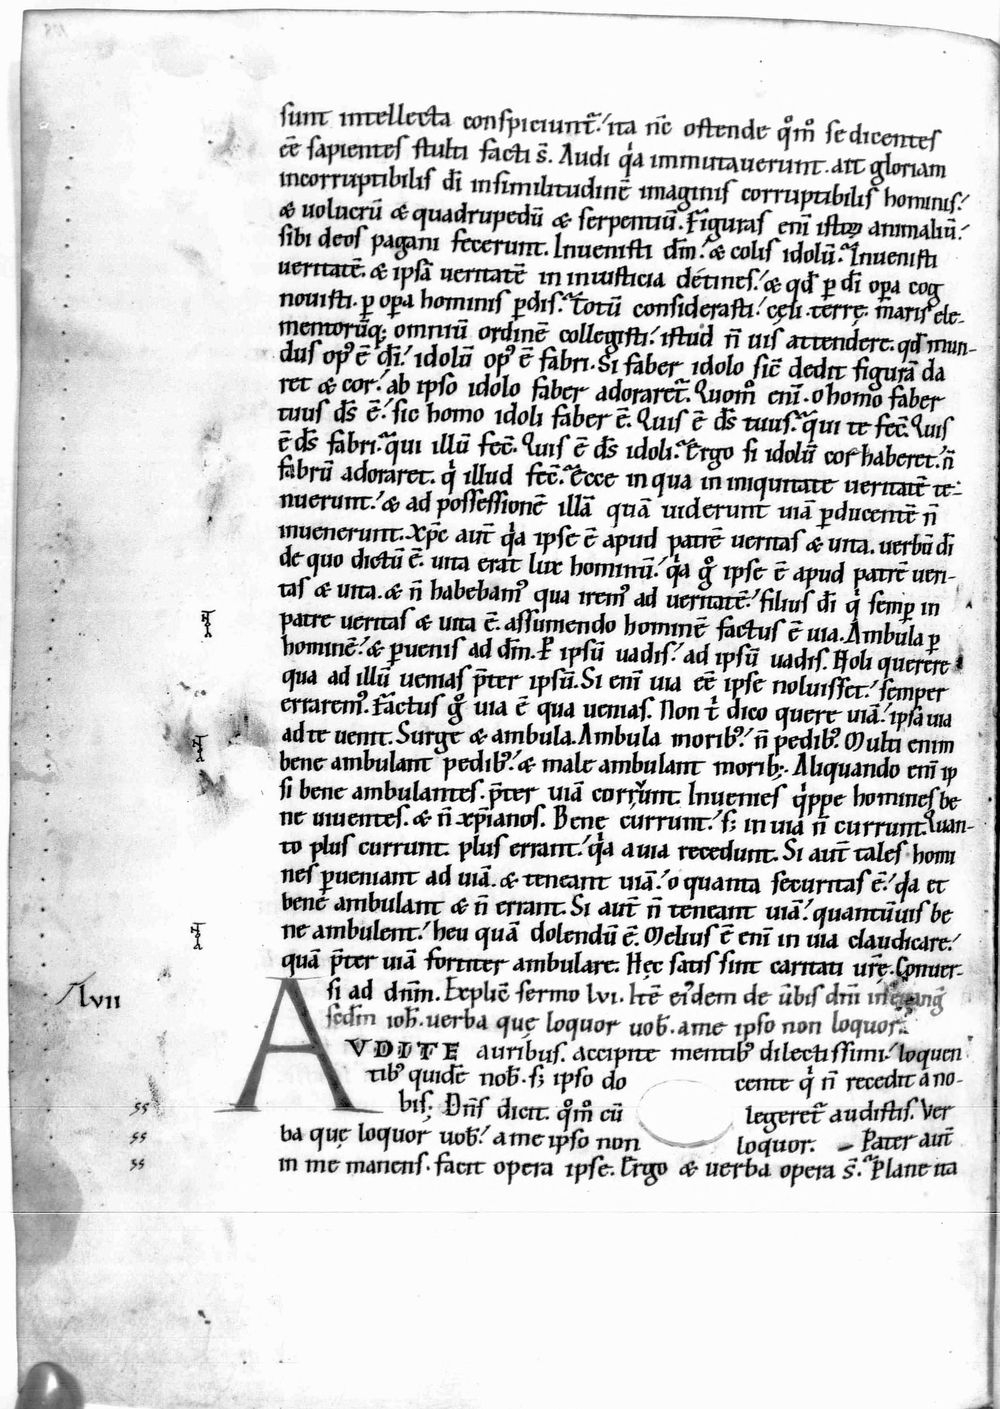 sunt intellecta conspiciunt᷑. ita nc̄ ostende qm̊ se dicentes
ēē sapientes stulti facti s̄. Audi qa immutauerunt. ait gloriam
incorruptibilis dī insimilitudinē imaginis corruptibilis hominis.
& uolucrū & quadrupedū & serpentiū. Figuras enī istoꝝ animaliū.
sibi deos pagani fecerunt. Inuenisti dm̄. & colis idolū. Inuenisti
ueritatē. & ipsā ueritatē in iniusticia detines. & qd̄ ꝑ dī oꝑa cog
nouisti. ꝑ oꝑa hominis ꝑdis. Totū considerasti. cęli. terrę. maris ele-
mentorūq; omniū ordinē collegisti. istud n̄ uis attendere. qd̄ mun-
dus opꝰ ē dī. idolū opꝰ ē fabri. Si faber idolo sic̄ dedit figurā da
ret & cor. ab ipso idolo faber adoraret᷑. Quom̊ enī. o homo faber
tuus ds̄ ē. sic homo idoli faber ē. Quis ē ds̄ tuus. qui te fec̄. Quis
ē ds̄ fabri. qui illū fec̄. Quis ē ds̄ idoli. Ergo si idolū cor haberet. n̄
fabrū adoraret. qi illud fec̄. Ecce in qua in iniquitate ueritatē te-
nuerunt. & ad possessionē illā quā uiderunt uiā ꝑducentē n̄
inuenerunt. xpc̄ aut̄ qa ipse ē apud patrē ueritas & uita. uerbū dī
de quo dictū ē. uita erat lux hominū. qa g̊ ipse ē apud patrē ueri-
tas & uita. & n̄ habebamꝰ qua iremꝰ ad ueritatē. filius dī qi semꝑ in
patre ueritas & uita ē. assumendo hominē factus ē uia. Ambula ꝑ
hominē. & ꝑuenis ad dm̄. P̱ ipsū uadis. ad ipsū uadis. Noli querere
qua ad illū uenias p̄ter ipsū. Si enī uia ēē ipse noluisset. semper
erraremꝰ. Factus g̊ uia ē qua uenias. Non t̄ dico quere uiā. ipsa uia
ad te uenit. Surge & ambula. Ambula moribꝰ. n̄ pedibꝰ. Multi enim
bene ambulant pedibꝰ. & male ambulant morib;. Aliquando enī ip
si bene ambulantes. p̄ter uiā currunt. Inuenies qippe homines be
ne uiuentes. & n̄ xp̄ianos. Bene currunt. s; in uia n̄ currunt. Quan-
to plus currunt. plus errant. qa a uia recedunt. Si aut̄ tales homi
nes ꝑueniant ad uiā. & teneant uiā. o quanta securitas ē. qa et
bene ambulant & n̄ errant. Si aut̄ n̄ teneant uiā. quantūuis be
ne ambulent. heu quā dolendū ē. Melius ē enī in uia claudicare.
quā p̄ter uiā fortiter ambulare. Hęc satis sint caritati urę̄. Conuer-
si ad dnm̄. Explic̄ sermo lvi. Itē eiꝰdem de ūbis dnī
lvii
sedm̄ ioh̄. uerba quę loquor uob̄. a me ipso non loquor.
AVDITE auribus. accipite mentibꝰ dilectissimi. loquen
tibꝰ quidē nob̄. s; ipso do cente qi n̄ recedit a no-
bis; Dn̄s dicit. qm̊ cū legeret᷑ audistis. Ver
ba quę loquor uob̄. a me ipso non loquor. Pater aut̄
in me manens. facit opera ipse. Ergo & uerba opera s̄. Plane ita